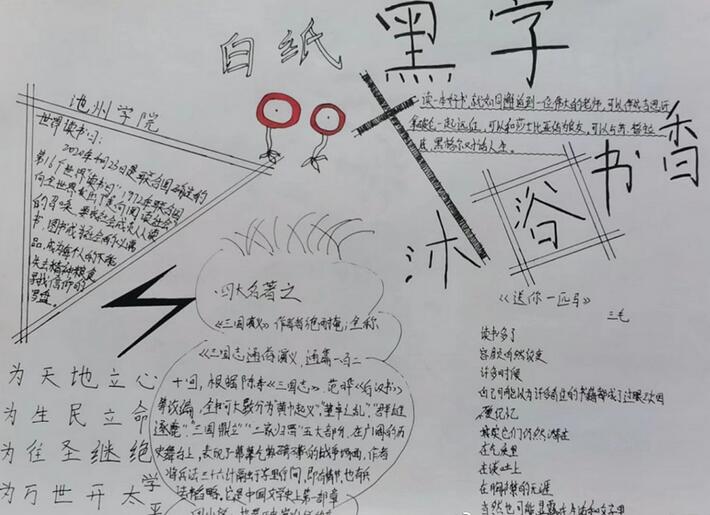 白纸黑字
池州学院
世界读书日:
2020年4月23日是联合国确定的
第16个"世界读书日",1972年联合国
向全世界发出了"走向阅读社会"
的召唤,要求社会成员人人读
书,图书成为社会的必需
品,成为每个人的不能
失去精神粮食
寻找信仰的
罗盘。
读一本好书,就如同邂逅到一位伟大的老师,可以伴你去思近
和他一起远征,可以和莎士比亚结为朋友,可以与苏
底、黑格尔对话人生。
沐浴书香
四大名著之
《三国演义》作者
全称
《三国志通俗演义》,通篇一百二
十回,根据陈寿《三国志》范晔《后汉书》
等改编,全书可大致分为"黄巾起义""董卓之乱""群雄
逐鹿""三国鼎立""三家归晋"五大部分,在广阔的历
史舞台上,表现了一幕幕气势磅礴的战争场面,作者
将兵法三十六计融于字里行间,即有情节,也有兵
法韬略。它是中国文学史上第一部章
为天地立心
为生民立命
为往圣继绝学
为万世开太平
《送你一匹马》
三毛
读书多了
容颜自然改变
许多时候
自己可能以为许多看过的书籍都成了过眼烟云
不复记忆
其实它们仍然潜在
在气质里
在谈吐上
在胸襟的无涯
当然也可能显露在生活和文字里